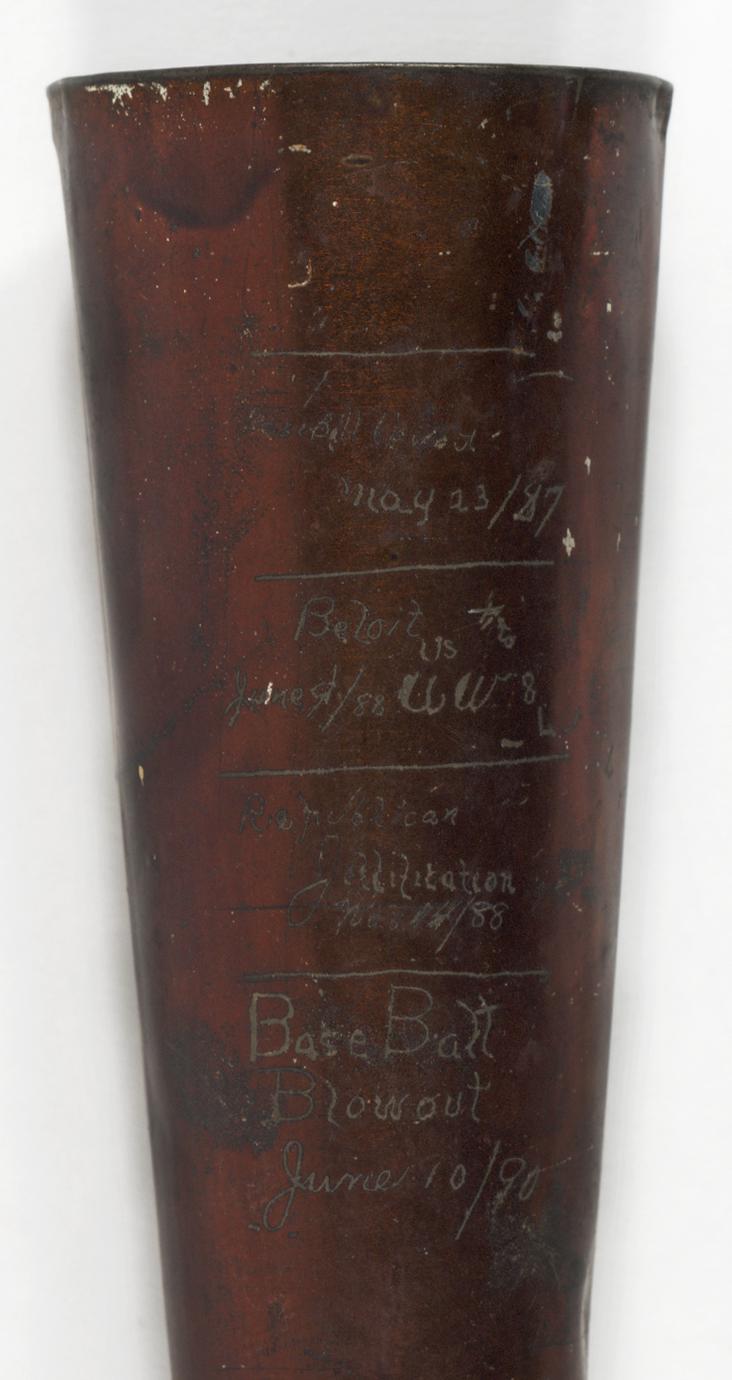 May 23/87
Beloit
vs
June 9/88 UW 8
Republican
Jollification
Nov 14/88
Base Ball
Blowout
June 10/90